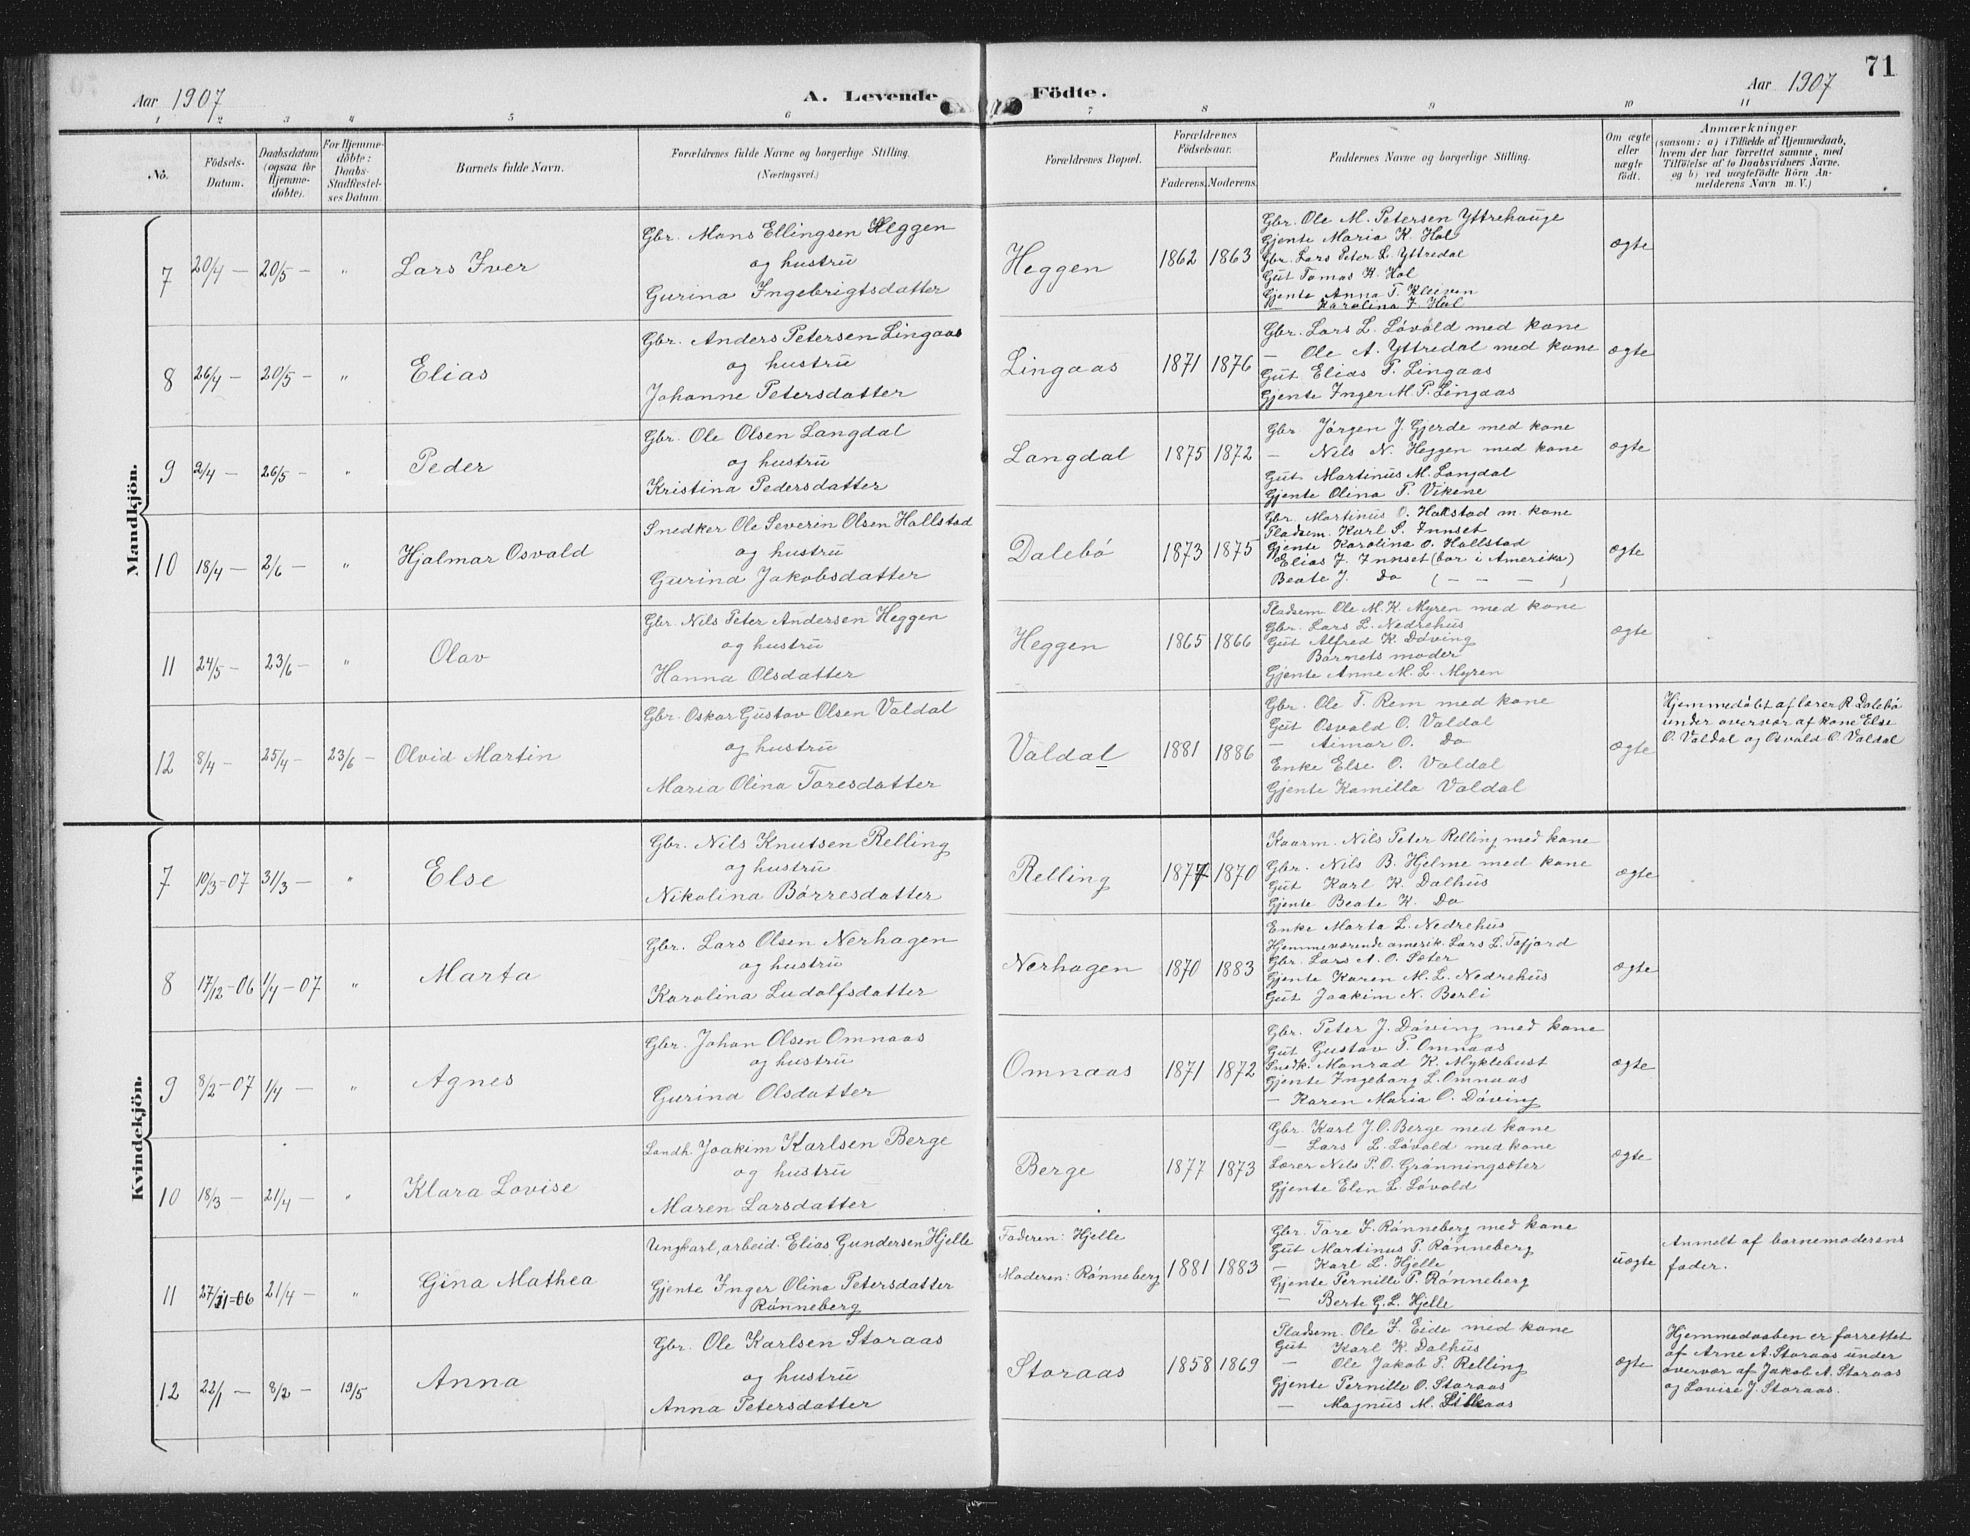 71
Aar 1907
A. Levende Födte.
Aar 1907
1 2 3 4 5 6 7 8 9 10 11
No.
Födsels-Datum.
Daabsdatum (ogsaa för Hjemme-döbte).
For Hjemme-döbte: Daabs-Stadfæstel-ses Datum
Barnets fulde Navn.
Forældrenes fulde Navne og borgerlige Stilling. (Næringsvei.)
Forældrenes Bopæl.
Forældrenes Födselsaar.
Faderens. Moderens.
Faddernes Navne og borgerlige Stilling.
Om ægte eller uægte födt.
Anmærkninger
(saasom: a) i Tilfælde af Hjemmedaab, hvem der har forrettet samme, med Tilföielse af to Daabsvidners Navne, og b) ved uægtefödte Börn An-melderens Navn m. V.)
Mandkjön.
7 20/4 — 20/5 — " Lars Iver
Gbr. Mons Ellingsen Heggen
og hustru
Gurina Ingebrigtsdatter
Heggen 1862 1863
Gbr. Ole M. Petersen Yttrehauge
Gjente Maria K. Hol
Gbr. Lars Peter L. Yttredal
Gut Tomas K. Hol
Gjente Anna T. Kleiven
— Karolina J. Hol
ægte
8 26/4 — 20/5 — " Elias
Gbr. Anders Petersen Lingaas
og hustru
Johanne Petersdatter
Lingaas 1871 1876
Gbr. Lars L. Løvold med kone
— Ole A. Yttredal med kone
Gut Elias P. Lingaas
Gjente Inger M. P. Lingaas
ægte
9 2/4 — 26/5 — " Peder
Gbr. Ole Olsen Langdal
og hustru
Kristina Pedersdatter
Langdal 1875 1872
Gbr. Jørgen J. Gjerde med kone
— Nils N. Heggen med kone
Gut Martinus M. Langdal
Gjente Olina P. Vikene
ægte
10 18/4 — 2/6 — " Hjalmar Osvald
Snedker Ole Severin Olsen Hallstad
og hustru
Gurina Jakobsdatter
Dalebø 1873 1875
Gbr. Martinus O. Hallstad m. kone
Pladsem. Karl S. Innset
Gjente Karolina O. Hallstad
Elias J. Innset (bor i Amerika)
Beate J. Do ( — — — )
ægte
11 24/5 — 23/6 — " Olav
Gbr. Nils Peter Andersen Heggen
og hustru
Hanna Olsdatter
Heggen 1865 1866
Pladsem. Ole M. K. Myren med kone
Gbr. Lars L. Nedrehus
Gut Alfred K. Døving
Barnets moder
Gjente Anne M. L. Myren
ægte
12 8/4 — 25/4 — 23/6 — Olvid Martin
Gbr. Oskar Gustav Olsen Valdal
og hustru
Maria Olina Toresdatter
Valdal 1881 1886
Gbr. Ole T. Rem med kone
Gut Osvald O. Valdal
— Aimar O. Do
Enke Else O. Valdal
Gjente Kamilla Valdal
ægte
Hjemmedøbt af lærer R. Dalebø
under overvær af kone Else
O. Valdal og Osvald O. Valdal
Kvindekjön.
7 10/3-07 31/3 — " Else
Gbr. Nils Knutsen Relling
og hustru
Nikolina Børresdatter
Relling 1877 1870
Kaarm. Nils Peter Relling med kone
Gbr. Nils B. Hjelme med kone
Gut Karl K. Dalhus
Gjente Beate K. Do
ægte
8 17/12-06 1/4-07 " Marta
Gbr. Lars Olsen Nerhagen
og hustru
Karolina Ludolfsdatter
Nerhagen 1870 1883
Enke Marta L. Nedrehus
Hjemmeværende amerik. Lars L. Tafjord
Gbr. Lars A. O. Sæter
Gjente Karen M. L. Nedrehus
Gut Joakim N. Berli
ægte
9 8/2-07 1/4 — " Agnes
Gbr. Johan Olsen Omnaas
og hustru
Gurina Olsdatter
Omnaas 1871 1872
Gbr. Peter J. Døving med kone
Gut Gustav P. Omnaas
Snedk. Monrad K. Myklebust
Gjente Ingeborg L. Omnaas
— Karen Maria O. Døving
ægte
10 18/3 — 21/4 — " Klara Lovise
Landh. Joakim Karlsen Berge
og hustru
Maren Larsdatter
Berge 1877 1873
Gbr. Karl J. O. Berge med kone
— Lars L. Løvold med kone
Lærer Nils P. O. Grønningsæter
Gjente Elen L. Løvold
ægte
11 27/11-06 21/4 — " Gina Mathea
Ungkarl, arbeid. Elias Gundersen Hjelle
Gjente Inger Oline Petersdatter
Rønneberg
Faderen: Hjelle
Moderen: Rønneberg 1881 1883
Gbr. Tore J. Rønneberg med kone
Gut Martinus P. Rønneberg
— Karl L. Hjelle
Gjente Pernille P. Rønneberg
— Berte G. L. Hjelle
uægte
Anmelt af barnemoderens
fader.
12 22/1 — 8/2 — 19/5 Anna
Gbr. Ole Karlsen Storaas
og hustru
Anna Petersdatter
Storaas 1858 1869
Pladsem. Ole J. Eide med kone
Gut Karl K. Dalhus
— Ole Jakob P. Relling
Gjente Pernille O. Storaas
— Magnus M.
ægte
Hjemmedaaben er forrettet
af Arne A. Storaas under
overvær af Jakob A. Storaas
og Lovise J. Storaas.